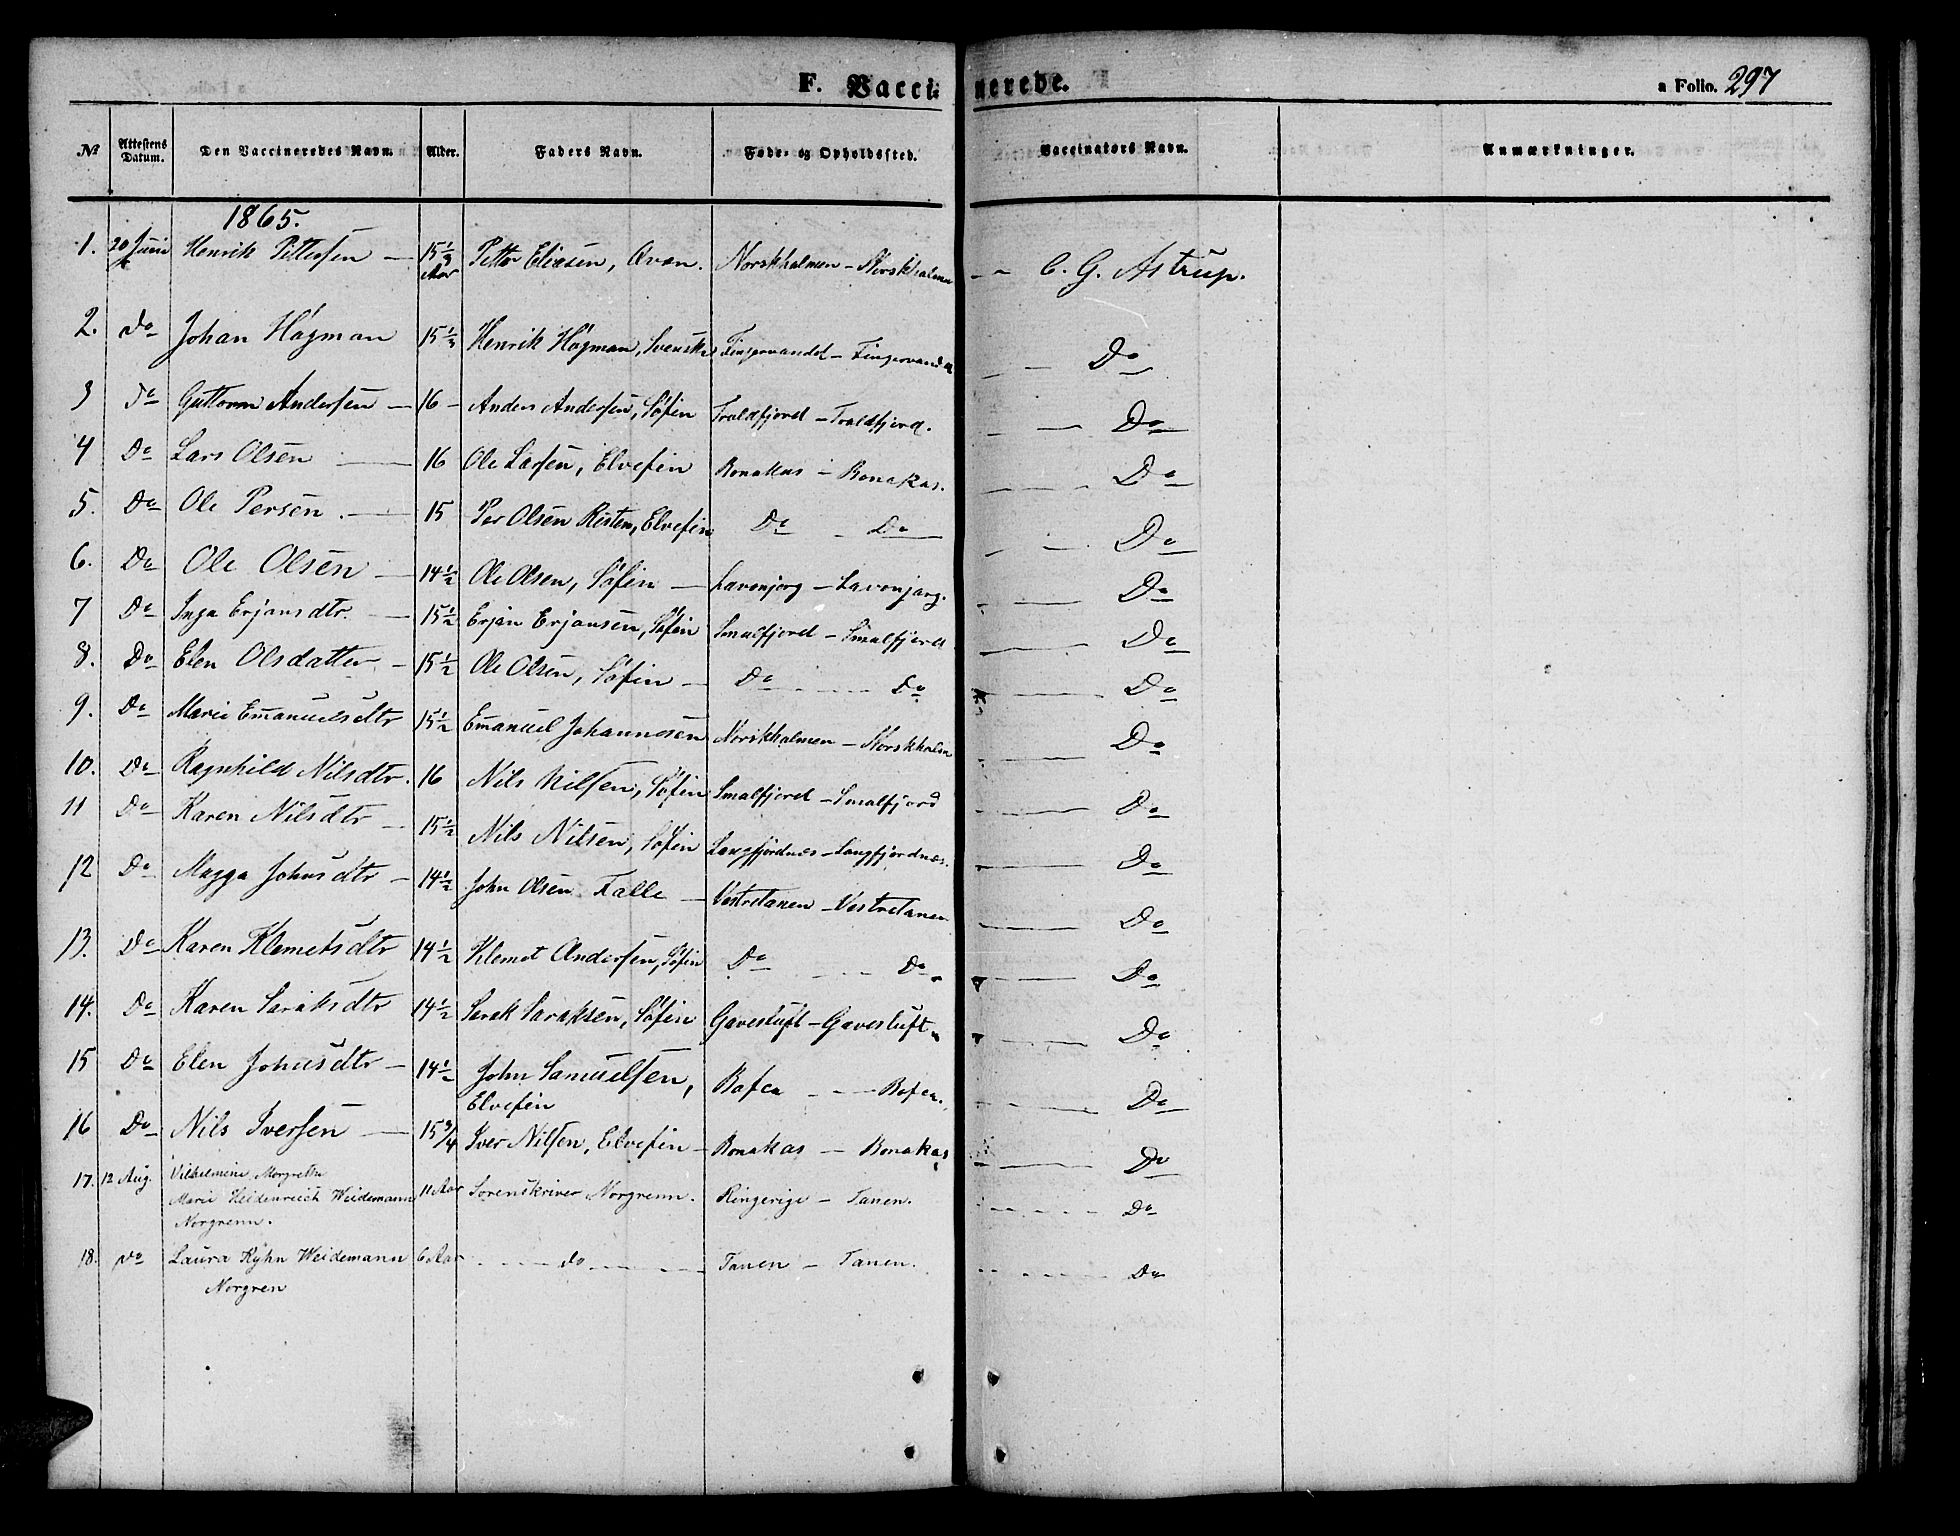 F. Vaccinerede.
a Folio. 297
No Attestens Datum. Den Vaccineredes Navn. Alder. Faders Navn. Føde- og Opholdssted. Vaccinators Navn. Anmærkninger.
1865.
1. 20 Juni Henrik Pettersen — 15 1/3 Aar Petter Eliasen, Qvæn. Norskholmen — Norskholmen — C. G. Astrup.
2. Do Johan Høgman 15 1/3 Henrik Høgman, Svensk Fingervandet — Fingervandet — Do
3 Do Guttorm Andersen — 16 — Anders Andersen, Søfin Troldfjord — Troldfjord. — Do
4 Do Lars Olsen — 16 Ole Larsen, Elvefin Bonakas — Bonakas. — Do
5. Do Ole Persen. — 15 Per Olsen Risten, Elvefin Do — Do — Do
6. Do Ole Olsen — 14 1/2 Ole Olsen, Søfin — Lavonjorg — Lavonjarg. — Do
7 Do Inga Erjansdtr. — 15 1/2 Erjan Erjansen, Søfin Smalfjord — Smalfjord — Do
8. Do Elen Olsdatter — 15 1/2 Ole Olsen, Søfin — Do — Do — Do
9. Do Marie Emanuelsdtr 15 1/2 Emanuel Johannesen Norskholmen — Norskholm — Do
10. Do Ragnhild Nilsdtr. 16 Nils Nilsen, Søfin Smalfjord — Smalfjord — Do
11 Do Karen Nilsdtr — 15 1/2 Nils Nilsen, Søfin Langfjordnæs — Langfjordnæs. — Do
12 Do Magga Johnsdtr — 14 1/2 John Olsen Falle — Vestretanen — Vestretanen — Do
13. Do Karen Klemetsdtr 14 1/2 Klemet Andersen, Søfin Do — Do — Do
14. Do Karen Saraksdtr 14 1/2 Sarak Saraksen, Søfin Gavesluft — Gavesluft — Do
15 Do Elen Johnsdtr — 14 1/2 John Samuelsen, Bofea — Bofea. — Do
Elvefin
16 Do Nils Iversen — 15 3/4 Iver Nilsen, Elvefin — Bonakas — Bonakas — Do
17. 12 Aug. Vilhelmine Margrethe
Marie Heidenreich Weidemann 11 Aar Sorenskriver Norgrenn. Ringerige — Tanen. — Do
Norgrenn.
18. Do Laura Kyhn Weidemann 6 Aar — do — Tanen — Tanen. — Do
Norgren